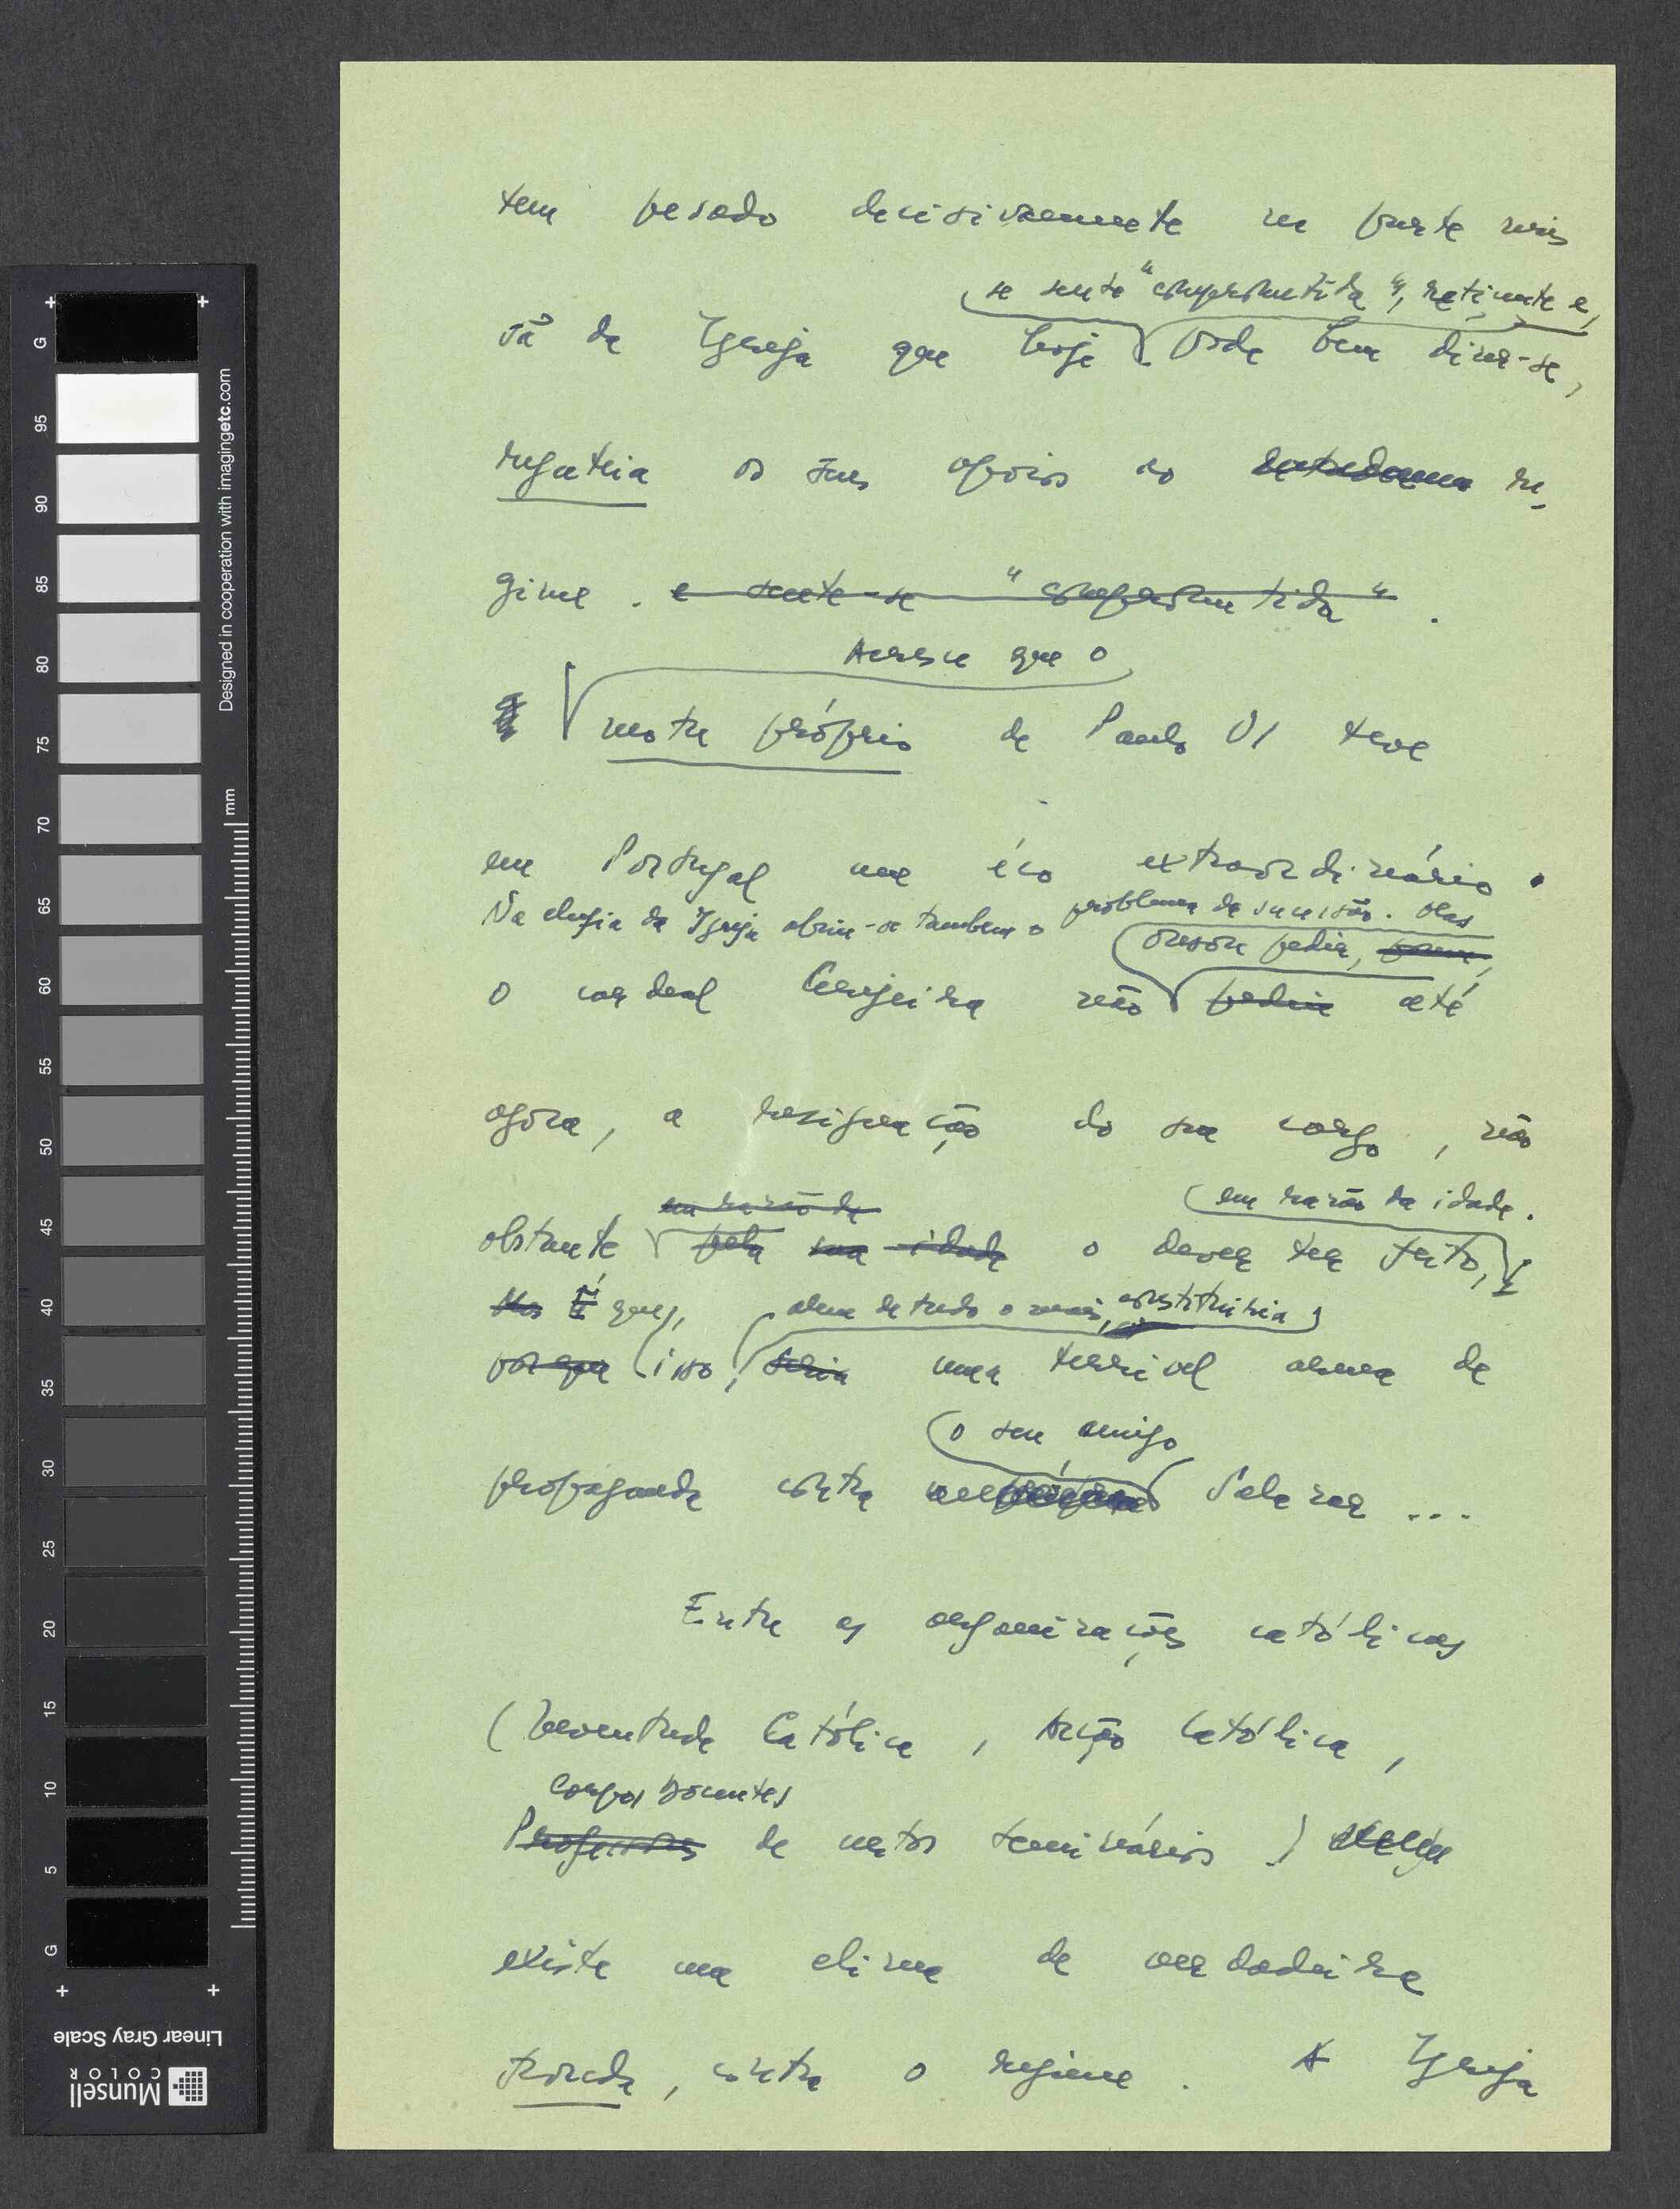 tem pesado decisivamente na parte mais
se sente "comprometida", reticente e,
sã da Igreja que hoje pode bem dizer-se,
regateia os seus apoios ao re-
gime. e sente-se "comprometida".
Acresce que o
motu próprio de Paulo VI teve
em Portugal um éco extraordinário.
Na chefia da Igreja abriu-se tambem o problema da sucessão. Mas
ousou pedir, porem,
o cardeal Cerejeira não pediu até
agora, a resignação do seu cargo, não
em razão da em razão da idade.
obstante pela sua idade o dever ter feito,
Mas É que, alem de tudo o mais, constituiria
porque isso, seria uma terrivel arma de
o seu amigo
propaganda contra Salazar ...
Entre as organizações católicas
(Juventude Católica, Acção Católica,
Corpos Docentes
Professores de certos seminários)
existe um clima de verdadeira
fronda, contra o regime. A Igreja
Designed in cooperation with imagingetc.com
mm
G 95 90 85 80 75 70 65 60 55 50 45 40 35 30 25 20 15 10 5 G
Linear Gray Scale
Munsell
COLOR